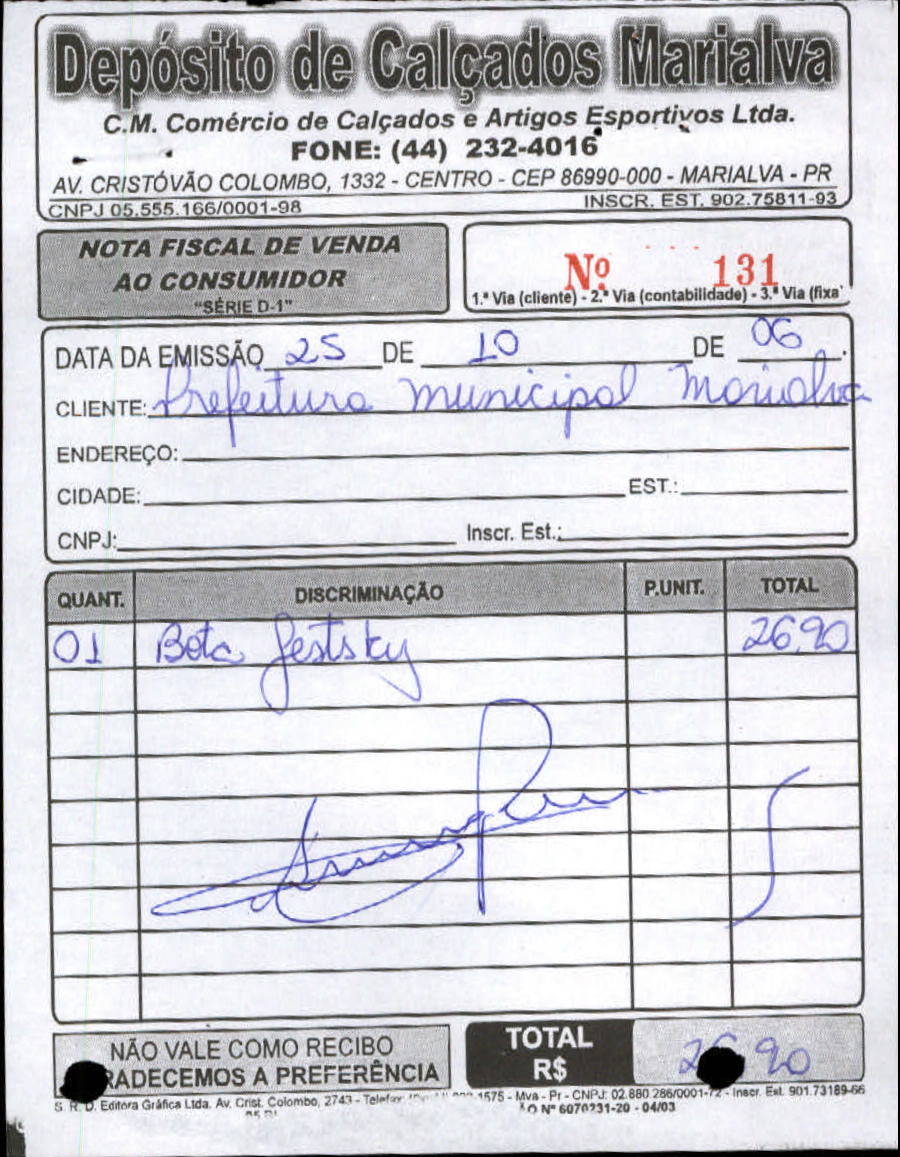 Depósito de Calçados Marialva
C.M. Comércio de Calçados e Artigos Esportivos Ltda.
FONE: (44) 232-4016
AV. CRISTÓVÃO COLOMBO, 1332 - CENTRO - CEP 86990-000 - MARIALVA - PR
CNPJ 05.555.166/0001-98 INSCR. EST. 902.75811-93
NOTA FISCAL DE VENDA
AO CONSUMIDOR
"SÉRIE D-1"
Nº 131
1.ª Via (cliente) - 2.ª Via (contabilidade) - 3.ª Via (fixa
DATA DA EMISSÃO 25 DE 10 DE 06.
CLIENTE: Prefeitura municipal Marialva
ENDEREÇO:
CIDADE: EST.:
CNPJ: Inscr. Est.:
QUANT. DISCRIMINAÇÃO P.UNIT. TOTAL
01 Bota 26,90
NÃO VALE COMO RECIBO
RADECEMOS A PREFERÊNCIA
TOTAL
R$ 26 90
S. R. D. Editora Gráfica Ltda. Av. Crist. Colombo, 2743 - Telefax 1575 - Mva - Pr - CNPJ: 02.880.286/0001-72 - Inscr. Est. 901.73189-66
O Nº 6070231-20 - 04/03